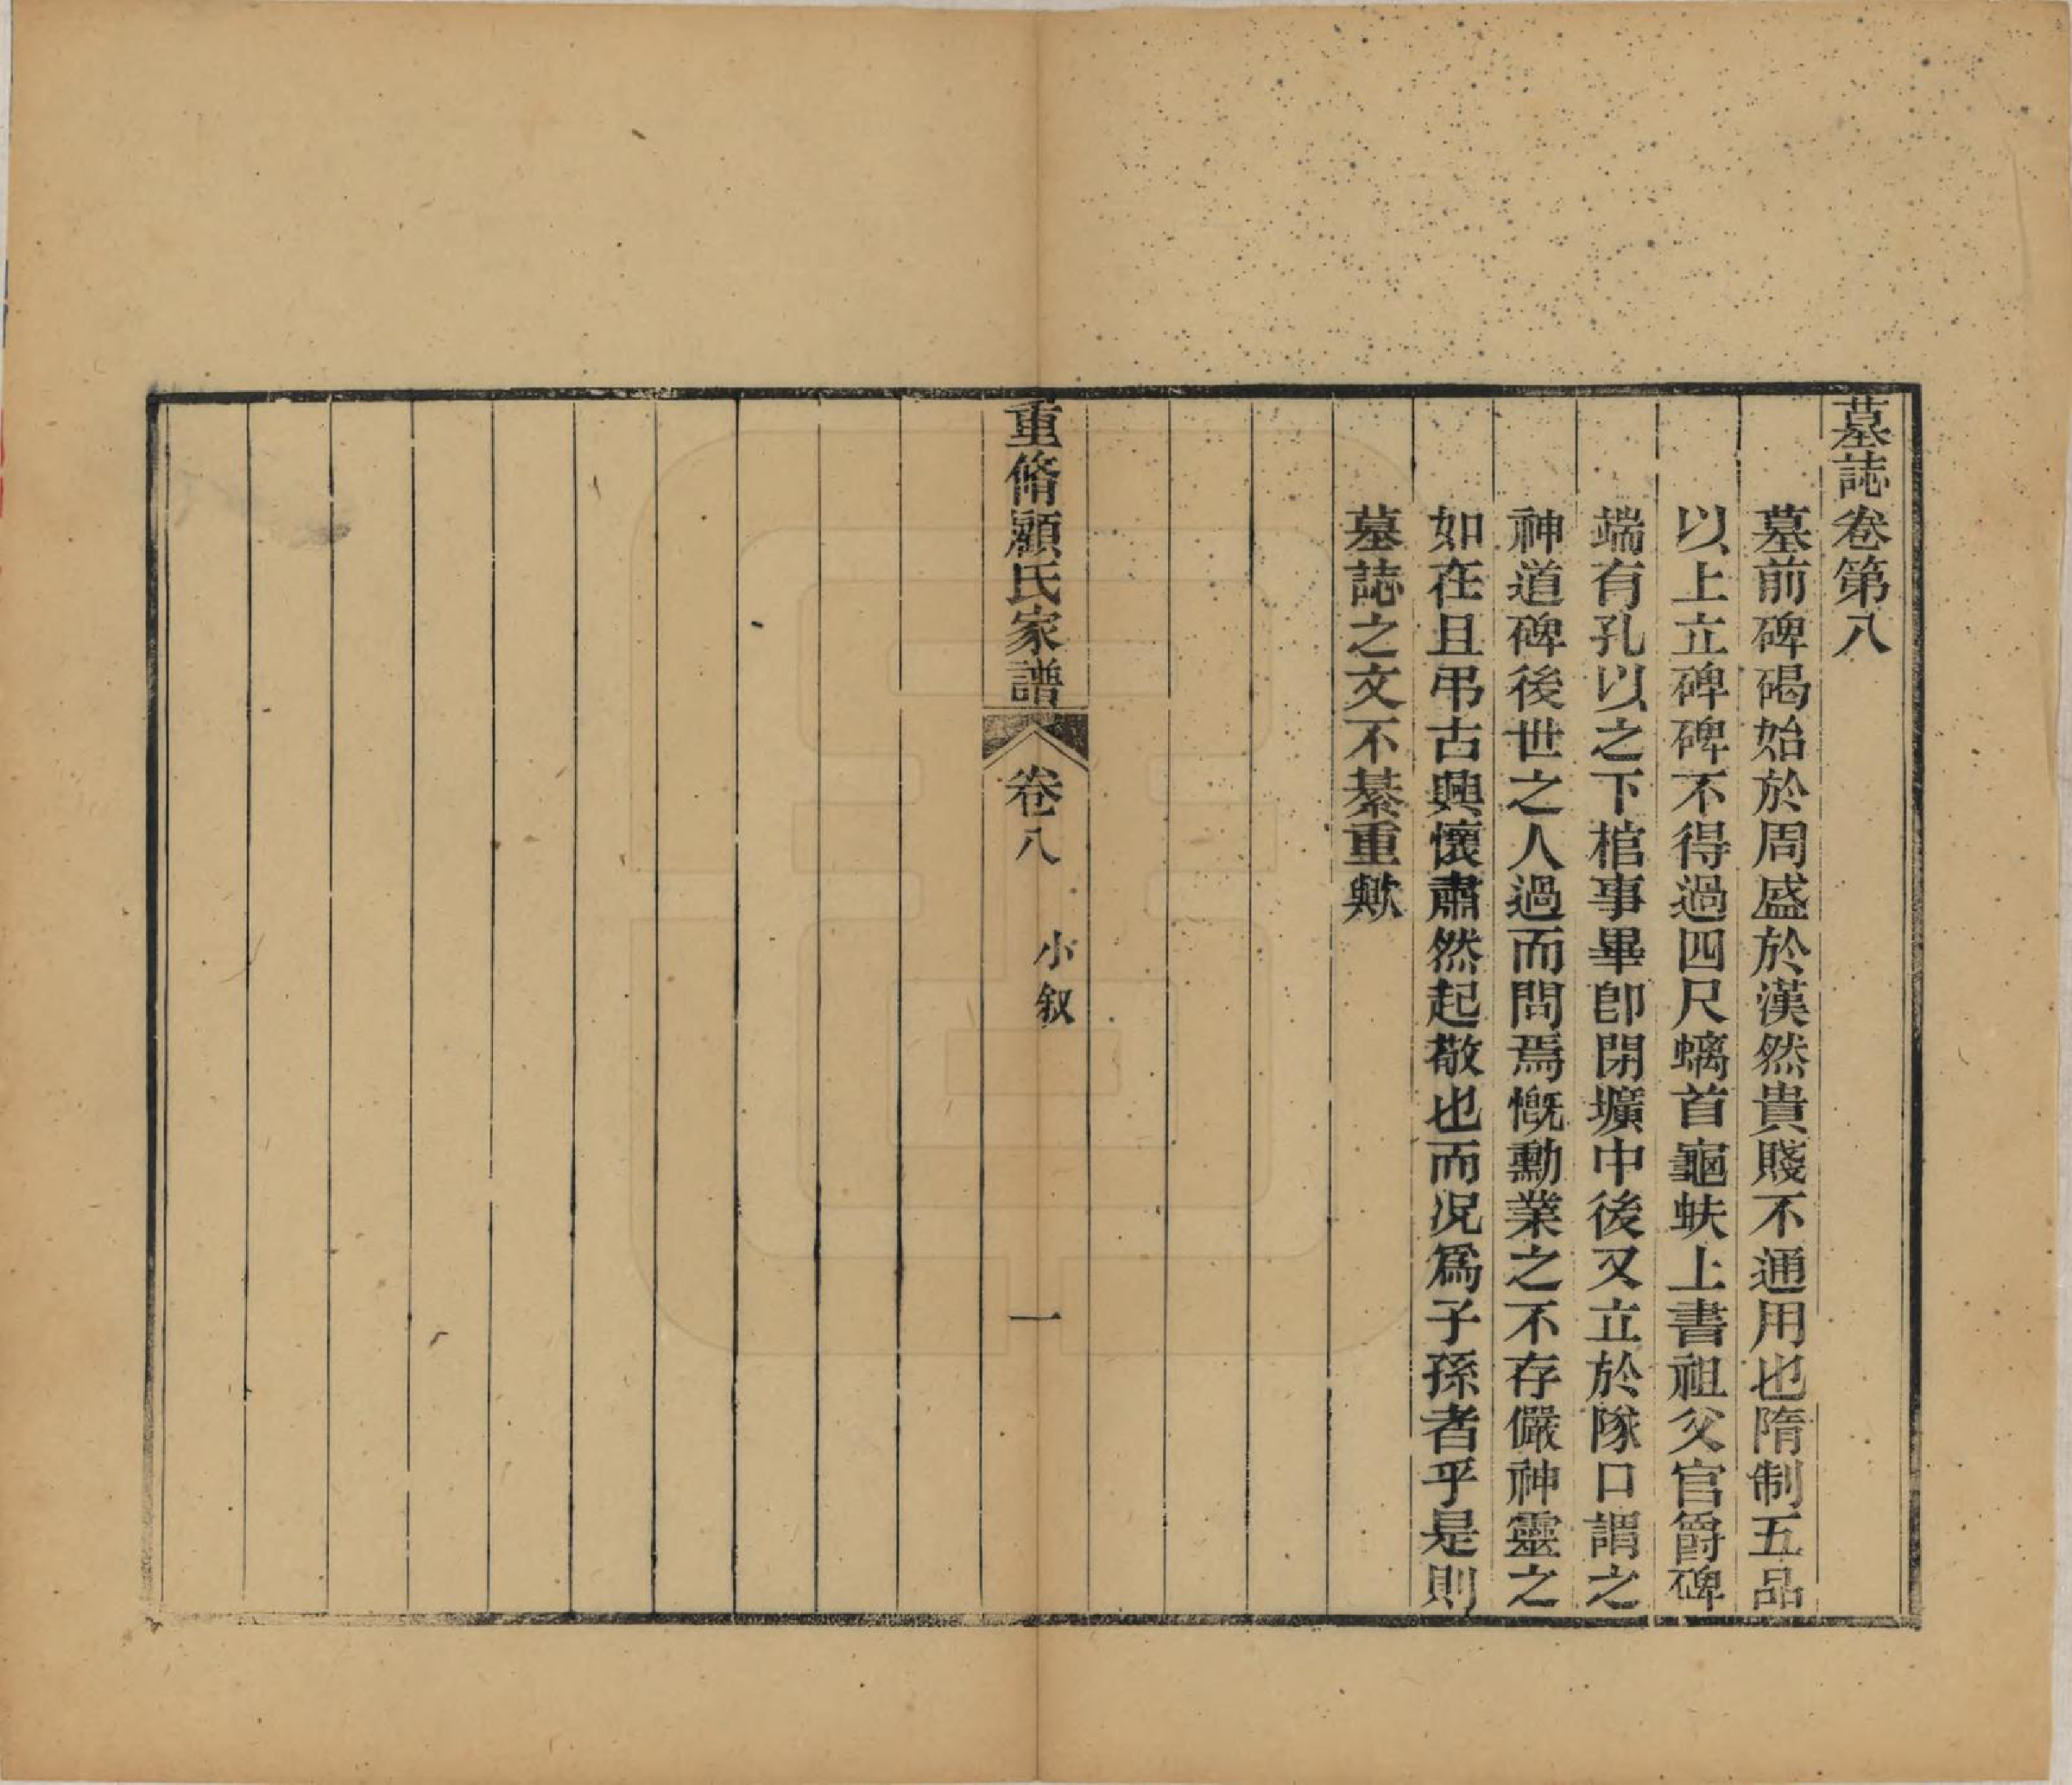 墓誌卷第八
墓前碑碣始於周盛於漢然貴賤不通用也隋制五品
以上立碑碑不得過四尺螭首龜蚨上書祖父官爵碑
端有孔以之下棺事畢卽閉壙中後又立於隊口謂之
神道碑後世之人過而問焉慨勳業之不存儼神靈之
如在且弔古興懷肅然起敬也而况爲子孫者乎是則
墓誌之文不綦重歟
重脩顧氏家譜
卷八
小叙
一